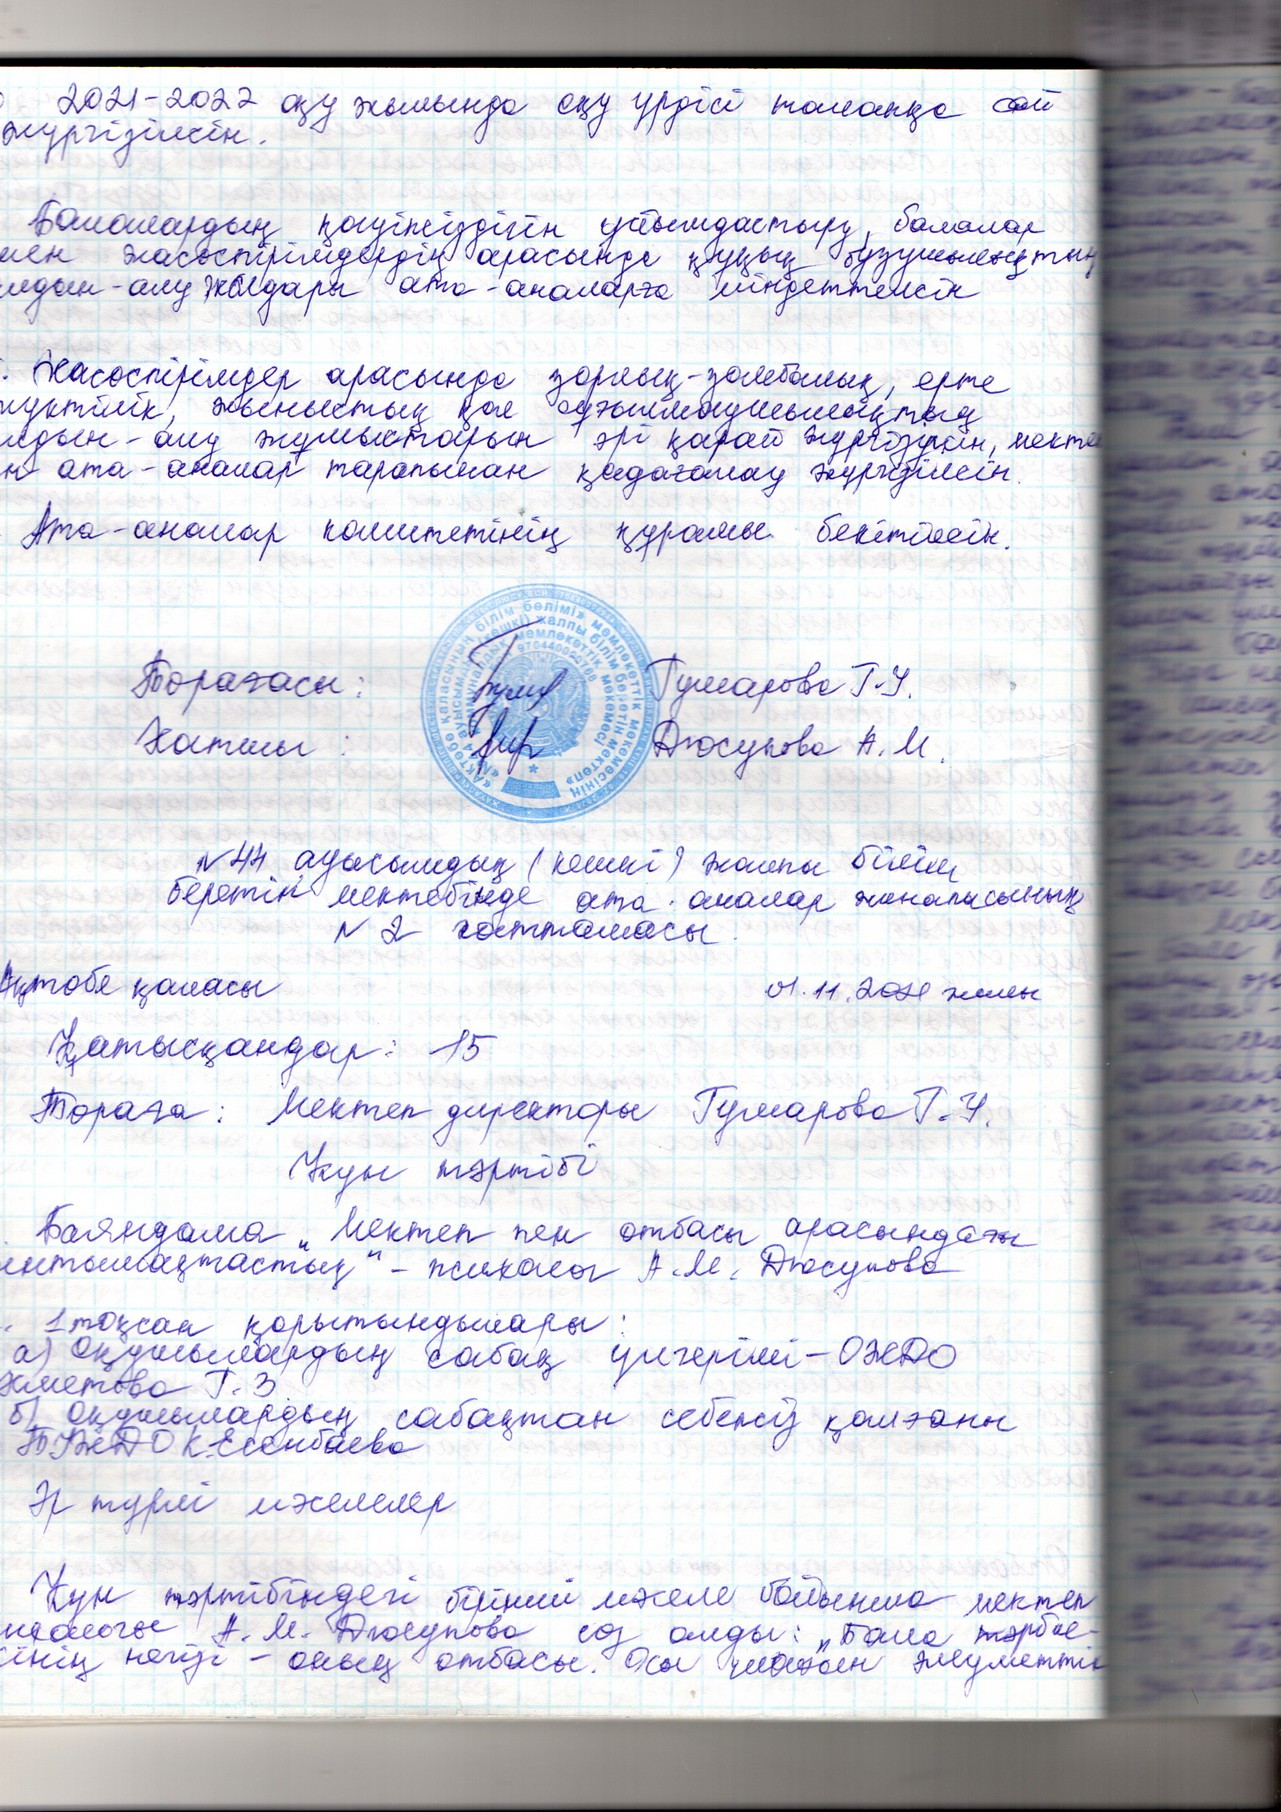 2021-2022 оқу жылында оқу үрдісі талапқа сай
жүргізілсін.
Балалардың қауіпсіздігін ұйымдастыру, балалар
мен жасөспірімдердің арасында құқық бұзушылықтың
алдын-алу жолдары ата-аналарға міндеттелсін
Жасөспірімдер арасында зорлық-зомбылық, ерте
жүктілік, жыныстық қол сұғылмаушылықтың
алдын-алу жұмыстарын әрі қарай жүргізілсін, мектеп
ата-аналар тарапынан қадағалау жүргізілсін.
Ата-аналар комитетінің құрамы бекітілсін.
Төрағасы: Гумарова Г.У.
Хатшы: Дюсупова А.М.
«Ақтөбе қаласының білім бөлімі» мемлекеттік мекемесінің
«№44 ауысымдық (кешкі) жалпы білім беретін мектеп»
коммуналдық мемлекеттік мекемесі
№44 ауысымдық (кешкі) жалпы білім
беретін мектебінде ата-аналар жиналысының
№2 хаттамасы.
Ақтөбе қаласы 01.11.2021 жылы
Қатысқандар: 15
Төраға: Мектеп директоры Гумарова Г.У.
Күн тәртібі
Баяндама „Мектеп пен отбасы арасындағы
ынтымақтастық" - психолог А.М. Дюсупова
1 тоқсан қорытындылары:
а) Оқушылардың сабақ үлгерімі - ОЖДО
Ахметова Г.З
б) Оқушылардың сабақтан себепсіз қалғаны
ТЖДО К.Есенбаева
Әр түрлі мәселелер
Күн тәртібіндегі бірінші мәселе бойынша мектеп
психологы А.М. Дюсупова сөз алды: „Бала тәрбие-
сінің негізі - оның отбасы. Осы әлеуметтік